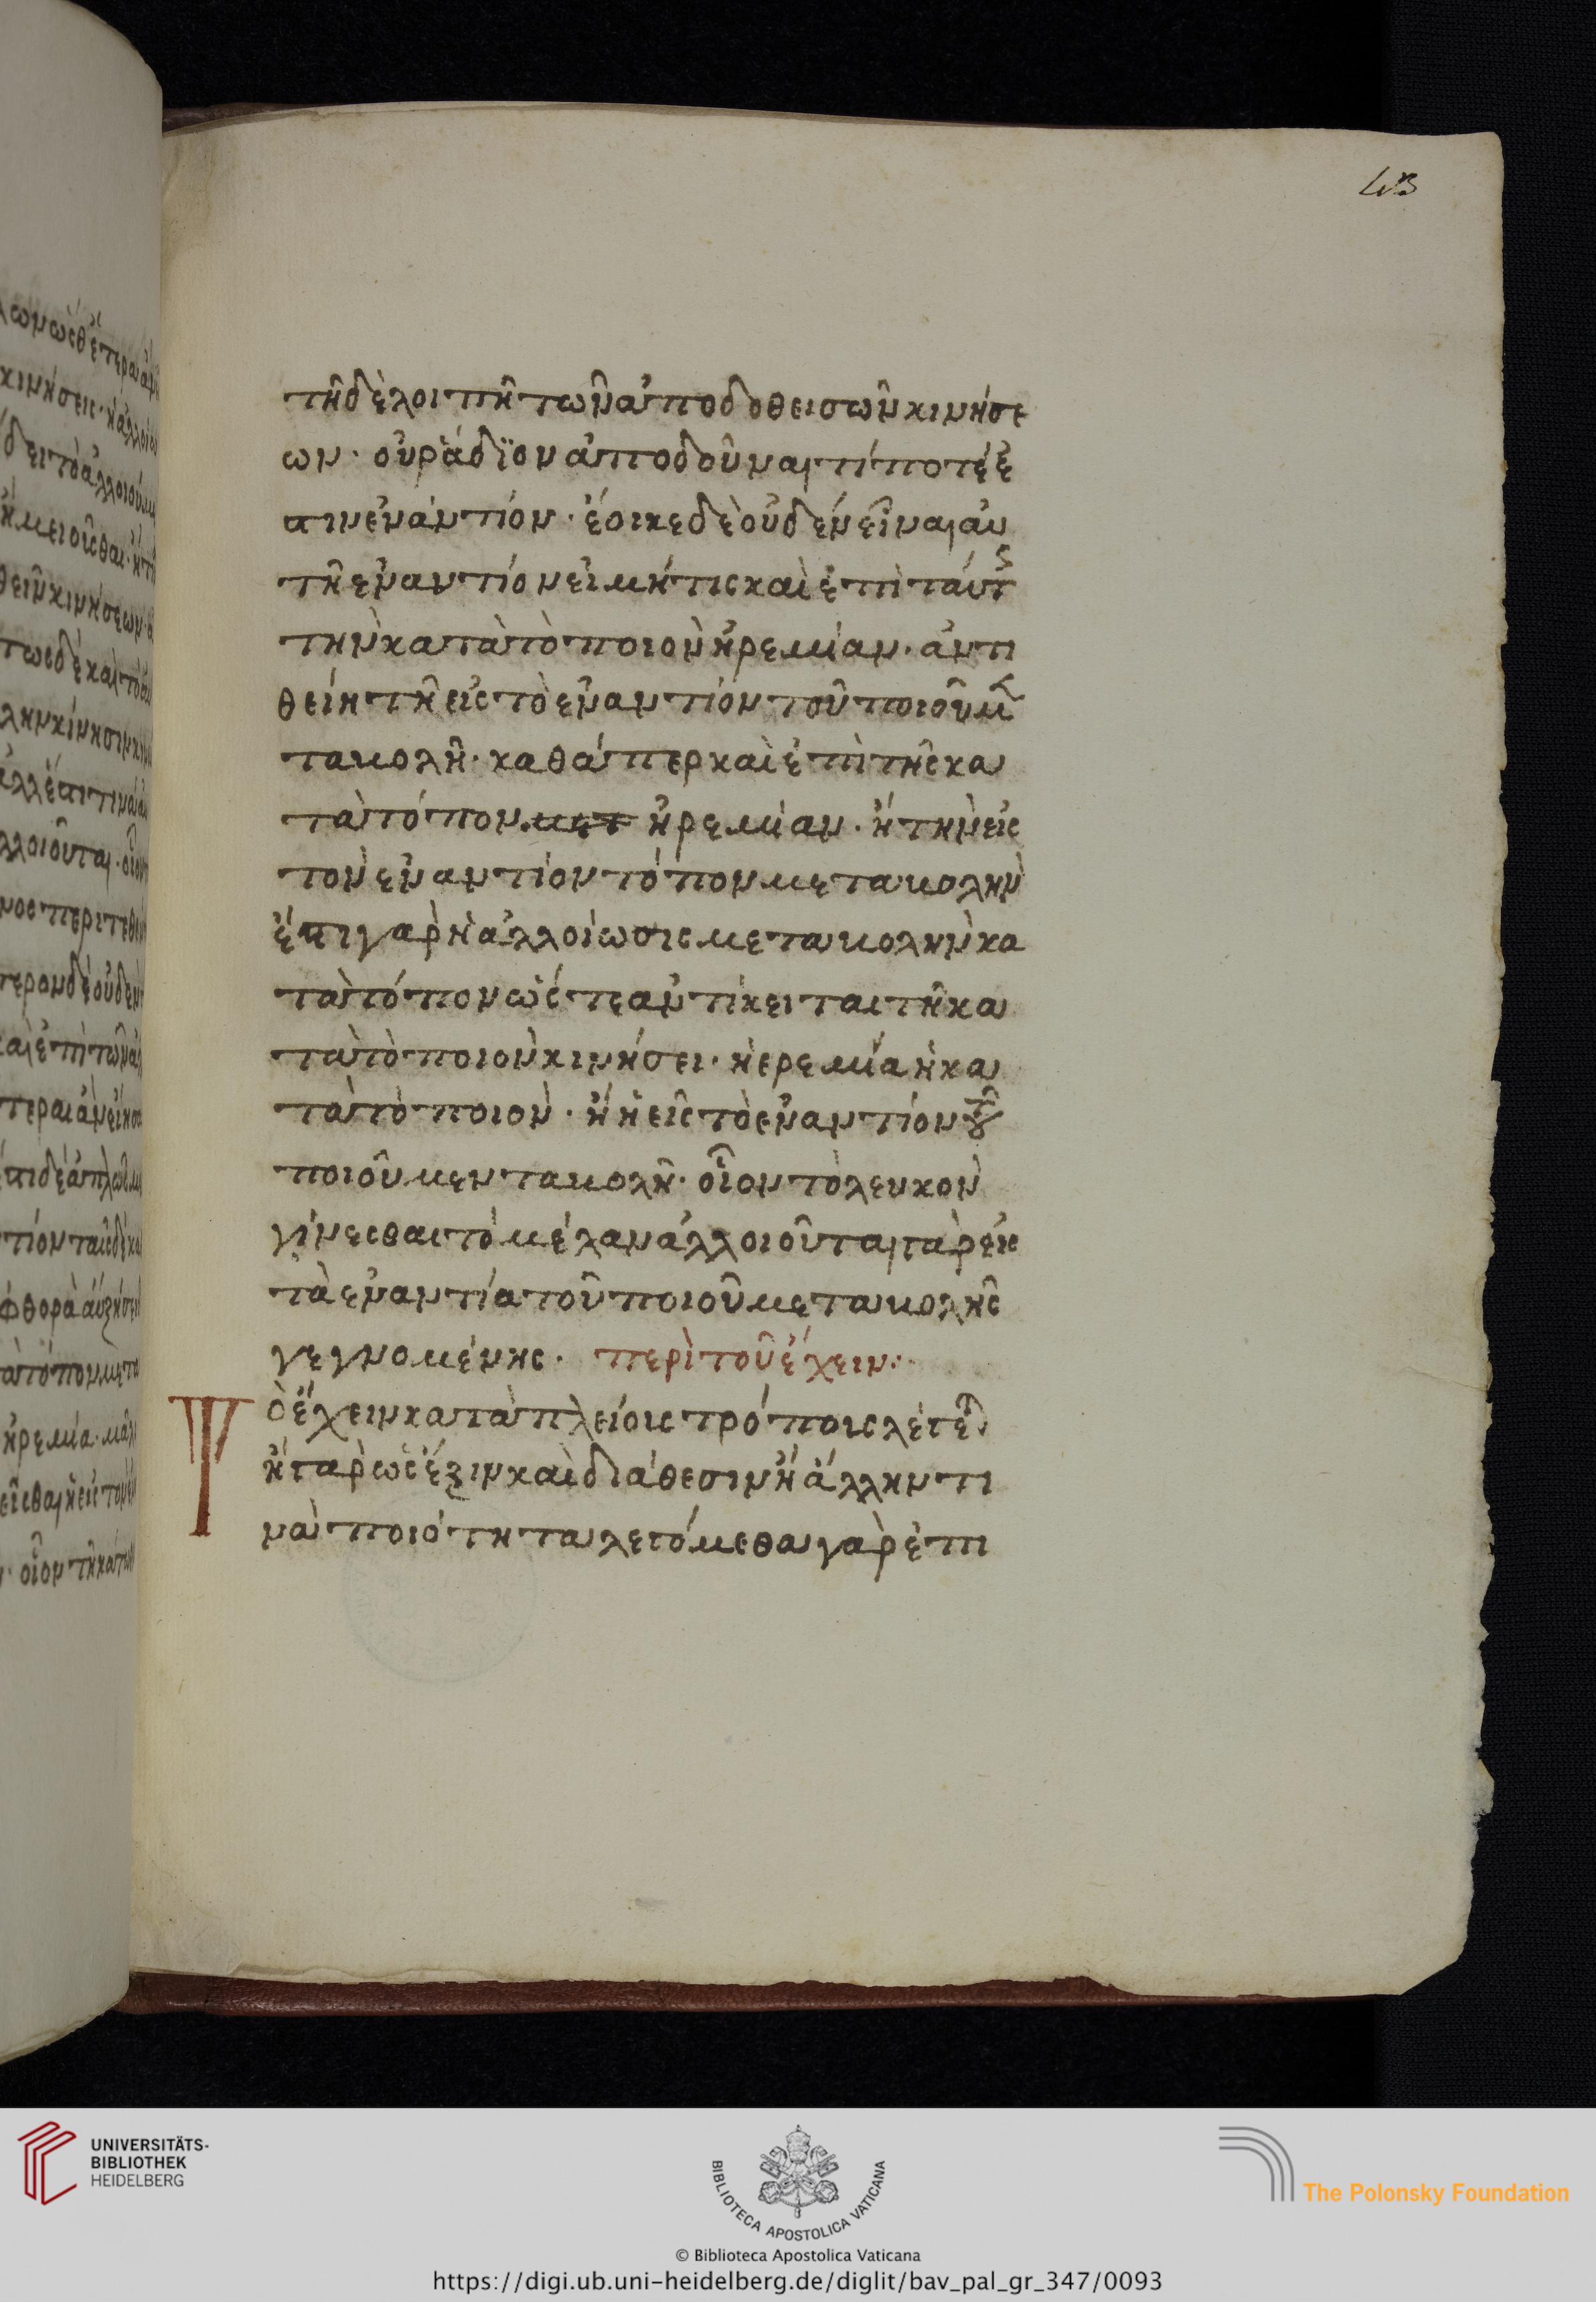 43
τῆ δὲ λοιπῆ τῶν ἀποδοθεισῶν κινήσε
ων· οὐ ῥάδϊον ἀποδοῦναι τί ποτέ ἐ
στιν ἐναντίον· ἔοικε δὲ οὐδὲν εἶναι αὐ
τῆ ἐναντίον εἰ μή τις καὶ ἐπὶ ταύτ
τὴν κατὰ τὸ ποιὸν ἠρεμίαν· ἀντι
θείη τῆ εἰς τὸ ἐναντίον τοῦ ποιοῦ μ
ταβολῆ· καθάπερ καὶ ἐπὶ τῆς κα
τὰ τόπον μετ ἠρεμίαν· ἢ τὴν εἰς
τὸν ἐναντίον τόπον μεταβολὴν
ἔστι γὰρ ἡ ἀλλοίωσις μεταβολὴν κα
τὰ τόπον ὥστε ἀντίκειται τῆ κα
τὰ τὸ ποιὸν κινήσει· ἡ ερεμία ἡ κα
τὰ τὸ ποιὸν· ἢ ἡ εἰς τὸ ἐναντίον τοῦ
ποιοῦ μενταβολῆ· οἷον τὸ λευκὸν
γίνεσθαι τὸ μέλαν ἀλλοιοῦται γὰρ εἰς
τὰ ἐναντία τοῦ ποιοῦ μεταβολῆς
γεγνομένης· περὶ τοῦ ἔχειν:
Τὸ ἔχειν κατὰ πλείοις τρόποις λέγε
ἢ γὰρ ὡς ἕξιν καὶ διάθεσιν ἢ ἄλλην τι
νὰ ποιότητα λεγόμεθα γὰρ ἐπι
UNIVERSITÄTS-
BIBLIOTHEK
HEIDELBERG
BIBLIOTECA APOSTOLICA VATICANA
The Polonsky Foundation
© Biblioteca Apostolica Vaticana
https://digi.ub.uni-heidelberg.de/diglit/bav_pal_gr_347/0093